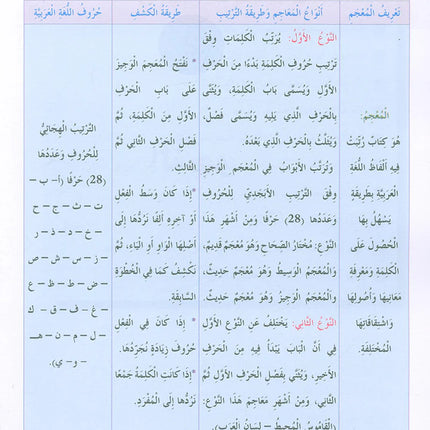 تَعْرِيفُ الْمُعْجَمِ
أَنْوَاعُ الْمَعَاجِمِ وَطَرِيقَةُ التَّرْتِيبِ
طَرِيقَةُ الْكَشْفِ
حُرُوفُ اللُّغَةِ الْعَرَبِيَّةِ
الْمُعْجَمُ:
هُوَ كِتَابٌ رُتِّبَتْ
فِيهِ أَلْفَاظُ اللُّغَةِ
الْعَرَبِيَّةِ بِطَرِيقَةٍ
يَسْهُلُ بِهَا
الْحُصُولُ عَلَى
الْكَلِمَةِ وَمَعْرِفَةِ
مَعَانِيهَا وَأُصُولِهَا
وَاشْتِقَاقَاتِهَا
الْمُخْتَلِفَةِ.
النَّوْعُ الْأَوَّلُ: يُرَتِّبُ الْكَلِمَاتِ وِفْقَ
تَرْتِيبِ حُرُوفِ الْكَلِمَةِ بَدْءًا مِنَ الْحَرْفِ
الْأَوَّلِ وَيُسَمَّى بَابُ الْكَلِمَةِ، وَيُثَنَّى
بِالْحَرْفِ الَّذِي يَلِيهِ وَيُسَمَّى فَصْلُ،
وَيُثَلَّثُ بِالْحَرْفِ الَّذِي بَعْدَهُ.
وَتُرَتَّبُ الْأَبْوَابُ فِي الْمُعْجَمِ الْوَجِيزِ
وَفْقَ التَّرْتِيبِ الْأَبْجَدِيِّ لِلْحُرُوفِ
وَعَدَدُهَا (28) حَرْفًا وَمِنْ أَشْهَرِ هَذَا
النَّوْعِ: مُخْتَارُ الصِّحَاحِ وَهُوَ مُعْجَمٌ قَدِيمٌ،
وَالْمُعْجَمُ الْوَسِيطُ وَهُوَ مُعْجَمٌ حَدِيثٌ،
وَالْمُعْجَمُ الْوَجِيزُ وَهُوَ مُعْجَمٌ حَدِيثٌ.
النَّوْعُ الثَّانِي: يَخْتَلِفُ عَنِ النَّوْعِ الْأَوَّلِ
فِي أَنَّ الْبَابَ يَبْدَأُ فِيهِ مِنَ الْحَرْفِ
الْأَخِيرِ، وَيُثَنَّى بِفَصْلِ الْحَرْفِ الْأَوَّلِ ثُمَّ
الثَّانِي، وَمِنْ أَشْهَرِ مَعَاجِمِ هَذَا النَّوْعِ:
(الْقَامُوسُ الْمُحِيطُ – لِسَانُ الْعَرَبِ).
* نَفْتَحُ الْمُعْجَمَ الْوَجِيزَ
عَلَى بَابِ الْحَرْفِ
الْأَوَّلِ مِنَ الْكَلِمَةِ، ثُمَّ
فَصْلِ الْحَرْفِ الثَّانِي ثُمَّ
الثَّالِثِ.
*إِذَا كَانَ وَسَطُ الْفِعْلِ
أَوْ آخِرُهُ أَلِفًا نَرُدُّهَا إِلَى
أَصْلِهَا الْوَاوِ أَوِ الْيَاءِ، ثُمَّ
نَكْشِفُ كَمَا فِي الْخُطْوَةِ
السَّابِقَةِ.
* إِذَا كَانَ فِي الْفِعْلِ
حُرُوفُ زِيَادَةٍ نُجَرِّدُهَا.
*إِذَا كَانَتْ الْكَلِمَةُ جَمْعًا
نَرُدُّهَا إِلَى الْمُفْرَدِ.
التَّرْتِيبُ الْهِجَائِيُّ
لِلْحُرُوفِ وَعَدَدُهَا
(28) حَرْفًا (أ– ب –
ت – ث – ج – ح
– خ – د – ذ – ر
– ز – س – ش – ص
– ض – ط – ظ – ع
– غ – ف – ق – ك
– ل – م – ن – هـ
– و – ي).